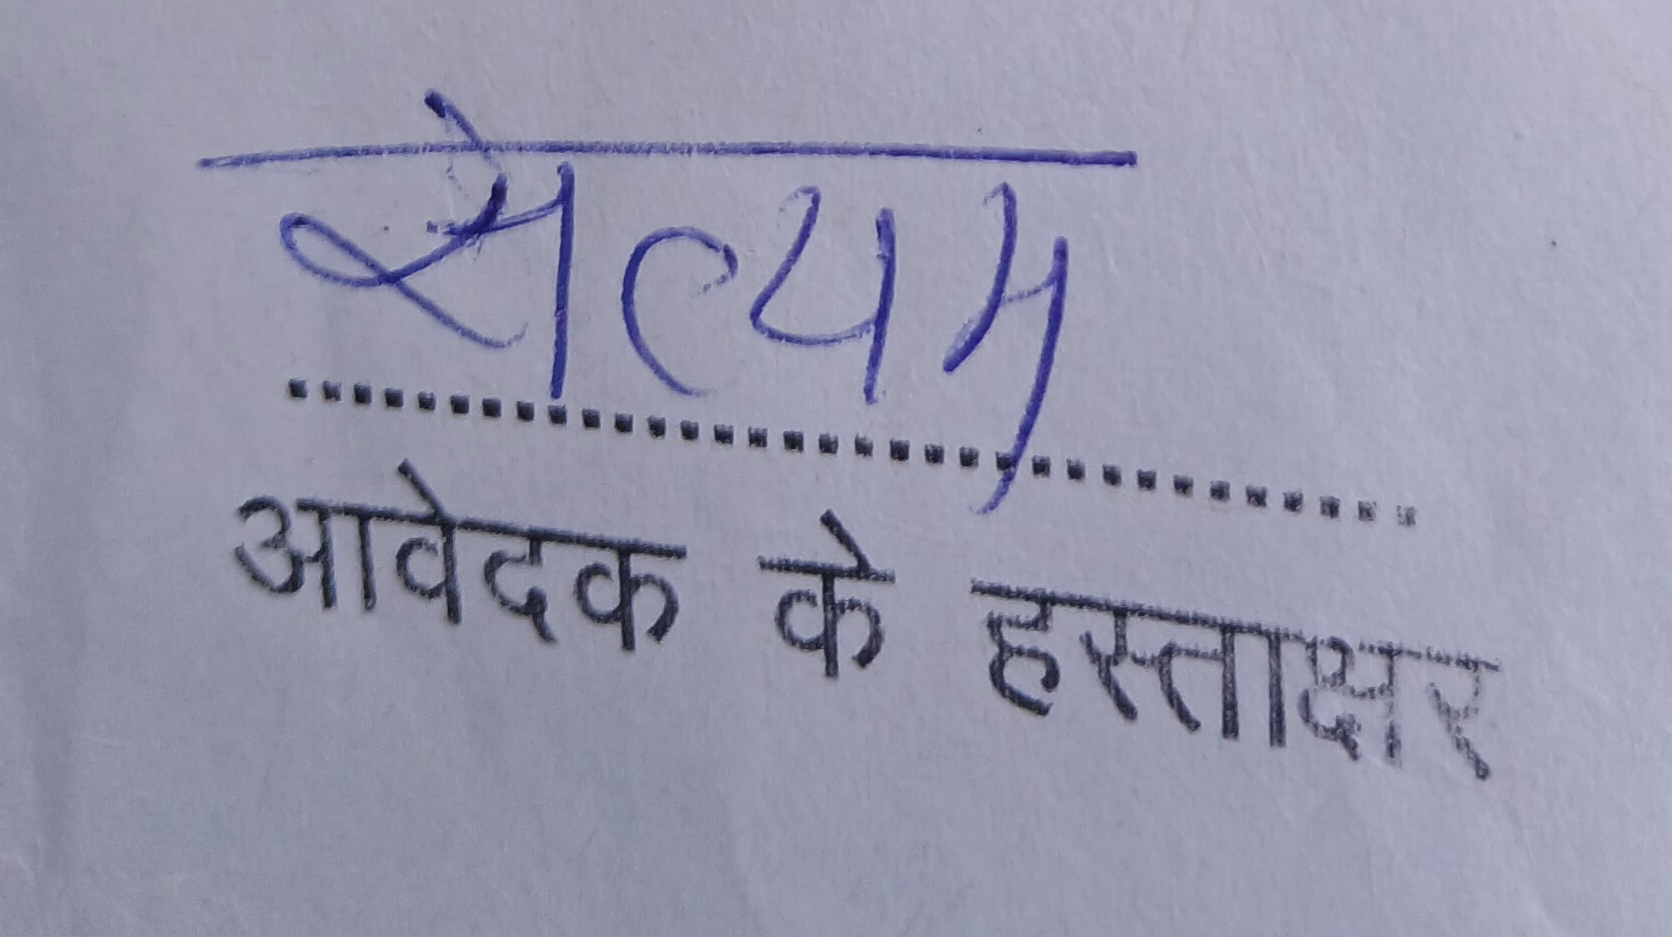 सत्यम
आवेदक के हस्ताक्षर